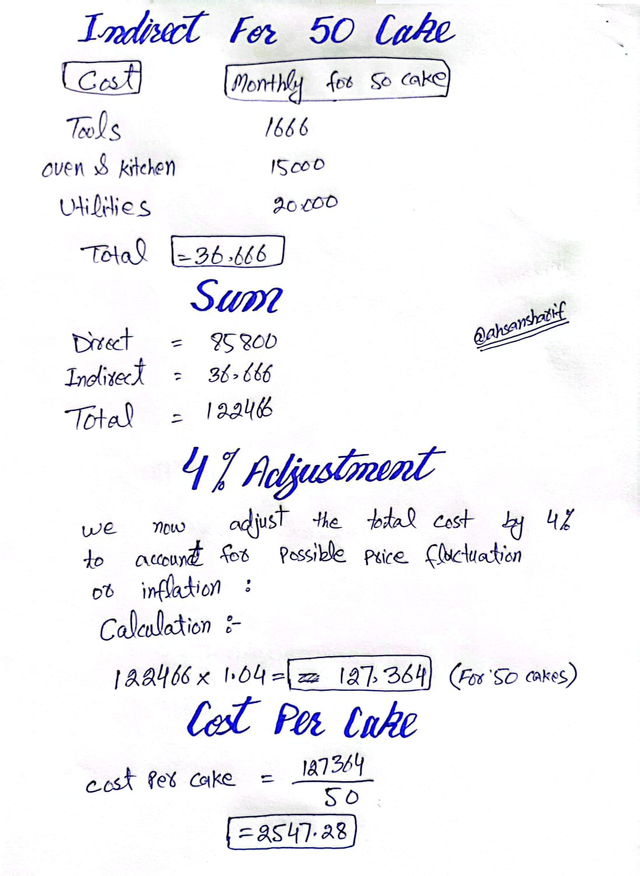 Indirect For 50 Cake
Cost Monthly for 50 cake
Tools 1666
oven & kitchen 15000
Utilities 20.000
Total = 36.666
Sum
Direct = 85800
Indirect = 36.666
Total = 122466
@ahsansharif
4% Adjustment
we now adjust the total cost by 4%
to account for Possible Price fluctuation
or inflation :
Calculation :-
122466 x 1.04 = = 127,364 (For 50 cakes)
Cost Per Cake
cost Per cake = 127364
50
= 2547.28